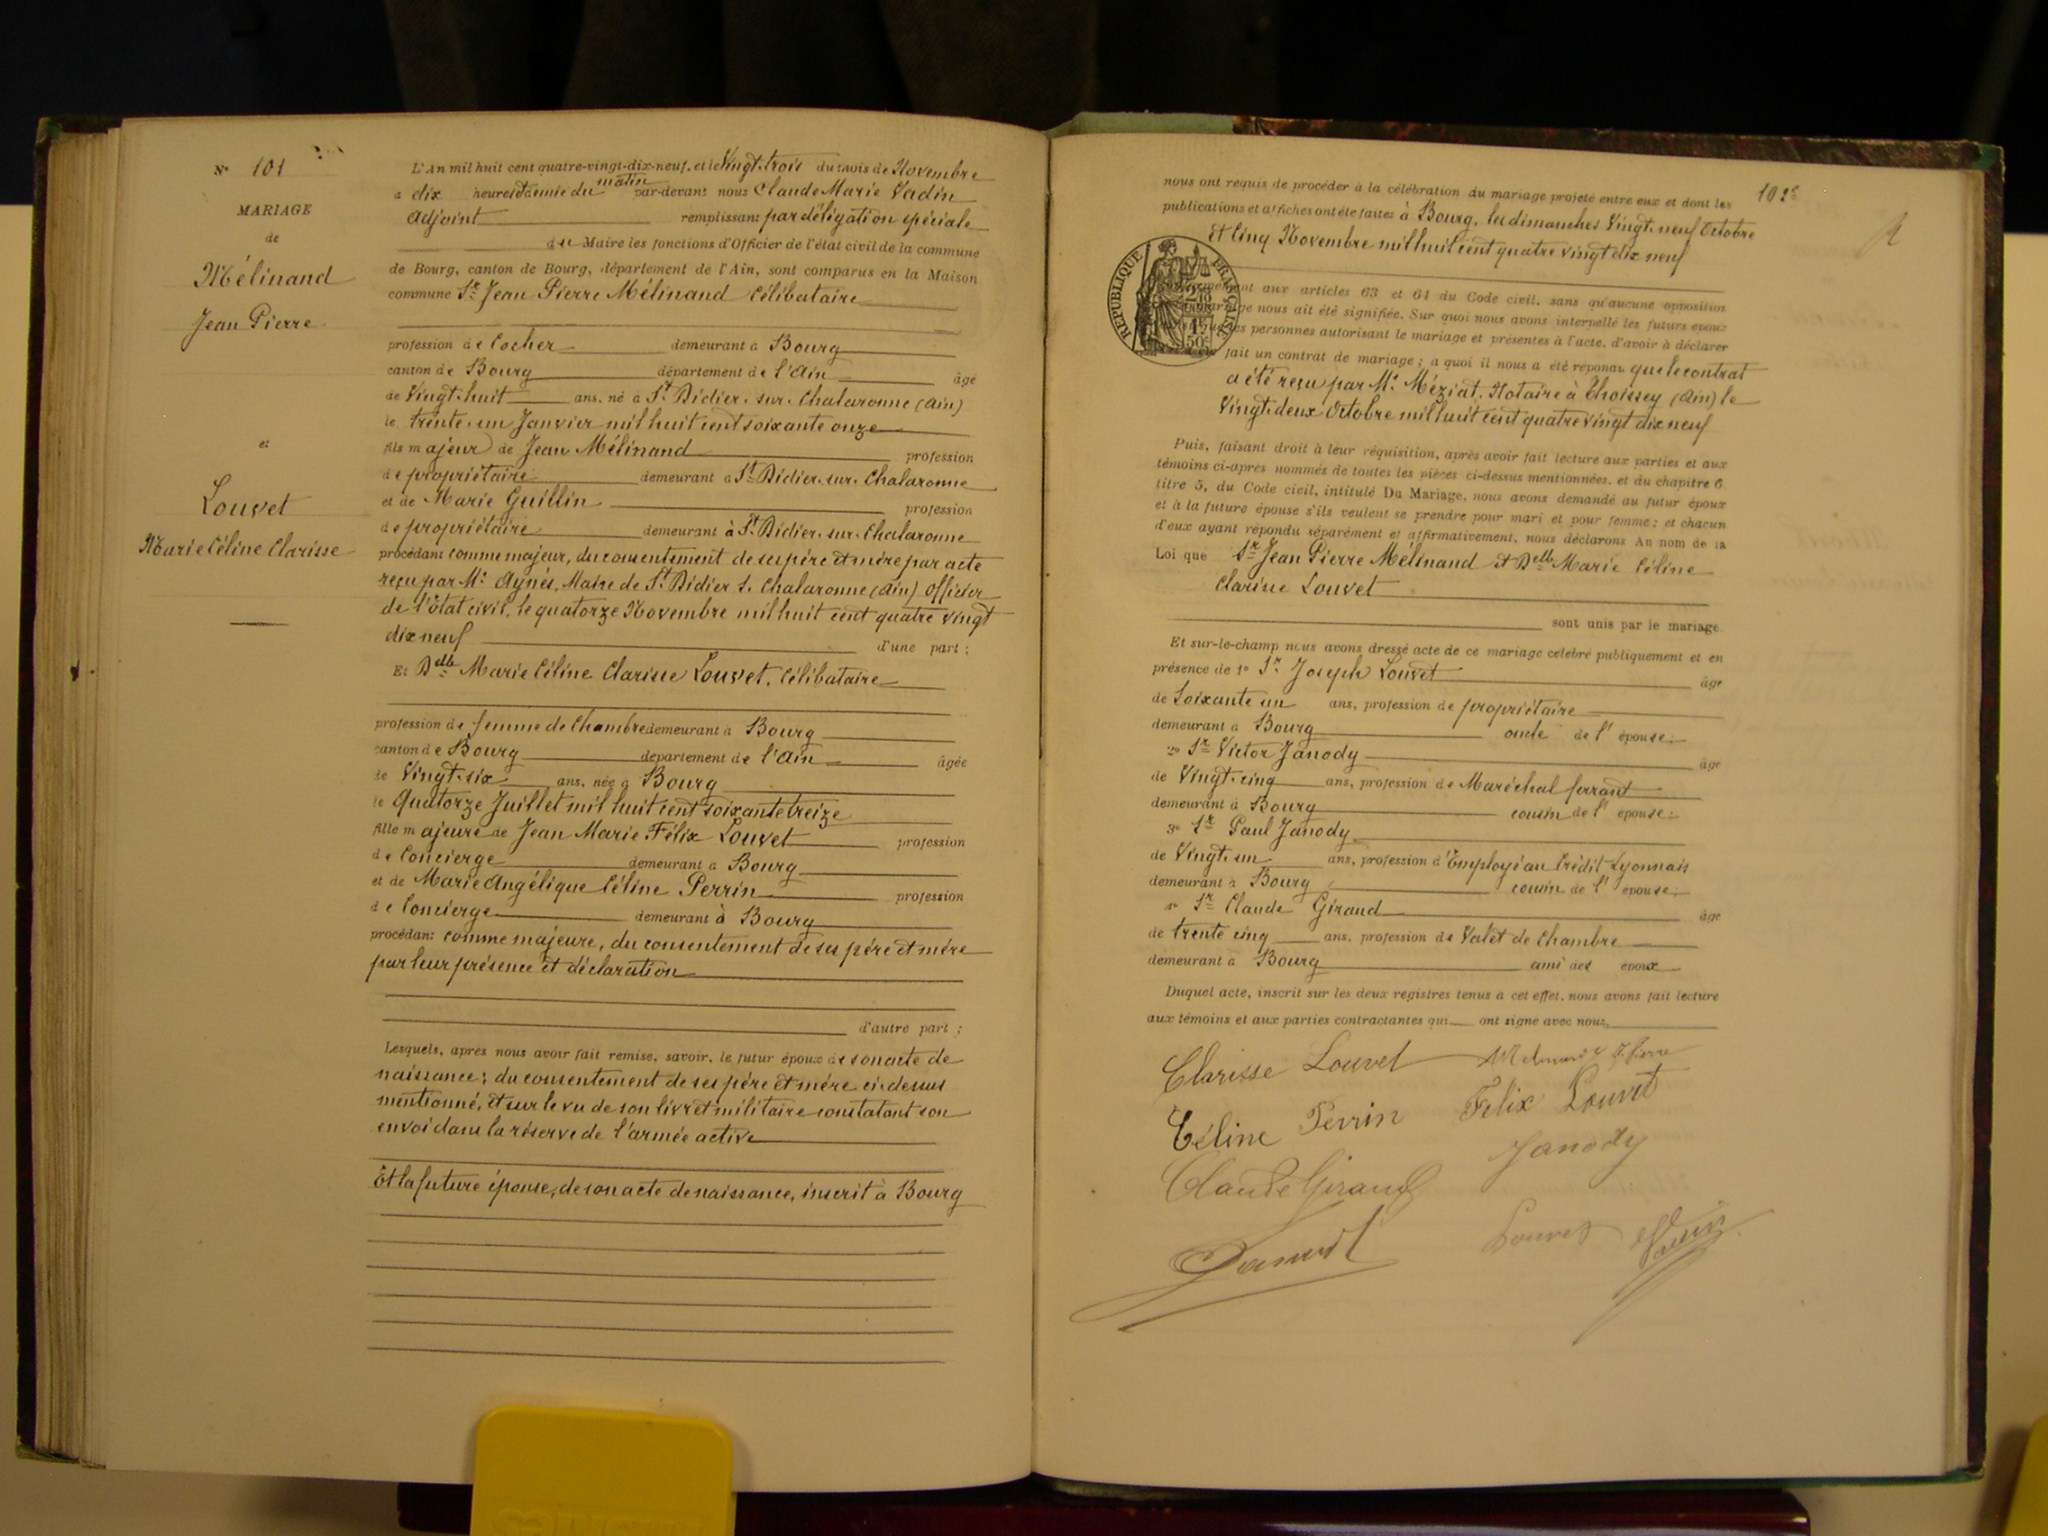 N° 101
MARIAGE
de
Mélinand
Jean Pierre
et
Louvet
Marie Céline Clarisse
L'An mil huit cent quatre-vingt-dix-neuf, et le Vingt-trois du mois de Novembre
à dix heures du matin par-devant nous Claude Marie Vadin
adjoint remplissant par délégation spéciale
de Maire les fonctions d'Officier de l'état civil de la commune
de Bourg, canton de Bourg, département de l'Ain, sont comparus en la Maison
commune Sr Jean Pierre Mélinand Célibataire
profession de Cocher demeurant à Bourg
canton de Bourg département de l'Ain âgé
de Vingt-huit ans, né à St Didier-sur-Chalaronne (Ain)
le trente-un Janvier mil huit cent soixante onze
fils majeur de Jean Mélinand profession
de propriétaire demeurant à St Didier-sur-Chalaronne
et de Marie Guillin profession
de propriétaire demeurant à St Didier-sur-Chalaronne
procédant comme majeur, du consentement de ses père et mère par acte
reçu par Me Agnès, Maire de St Didier s. Chalaronne (Ain) Officier
de l'Etat civil, le quatorze Novembre mil huit cent quatre vingt
dix neuf d'une part ;
Et Delle Marie Céline Clarisse Louvet, Célibataire
profession de femme de Chambre demeurant à Bourg
canton de Bourg département de l'Ain âgée
de Vingt-six ans, née à Bourg
le Quatorze Juillet mil huit cent soixante treize
fille majeure de Jean Marie Félix Louvet profession
de Concierge demeurant à Bourg
et de Marie Angélique Céline Perrin profession
de Concierge demeurant à Bourg
procédant comme majeure, du consentement de ses père et mère
par leur présence et déclaration
d'autre part ;
Lesquels, après nous avoir fait remise, savoir, le futur époux de son acte de
naissance; du consentement de ses père et mère ci-dessus
mentionné, et sur le vu de son livret militaire constatant son
envoi dans la réserve de l'armée active
Et la future épouse, de son acte de naissance, inscrit à Bourg
102e
nous ont requis de procéder à la célébration du mariage projeté entre eux et dont les
publications et affiches ont été faites à Bourg, les dimanches Vingt-neuf Octobre
et Cinq Novembre mil huit cent quatre vingt dix neuf
REPUBLIQUE FRANÇAISE
aux articles 63 et 64 du Code civil, sans qu'aucune opposition
nous ait été signifiée. Sur quoi nous avons interpellé les futurs époux
les personnes autorisant le mariage et présentes à l'acte, d'avoir à déclarer
fait un contrat de mariage ; à quoi il nous a été répondu que le contrat
a été reçu par Me Méziat, Notaire à Thoissey (Ain) le
Vingt-deux Octobre mil huit cent quatre vingt dix neuf
Puis, faisant droit à leur réquisition, après avoir fait lecture aux parties et aux
témoins ci-après nommés de toutes les pièces ci-dessus mentionnées, et du chapitre 6
titre 5, du Code civil, intitulé Du Mariage, nous avons demandé au futur époux
et à la future épouse s'ils veulent se prendre pour mari et pour femme ; et chacun
d'eux ayant répondu séparément et affirmativement, nous déclarons Au nom de la
Loi que Sr Jean Pierre Mélinand et Delle Marie Céline
Clarisse Louvet
sont unis par le mariage.
Et sur-le-champ nous avons dressé acte de ce mariage célébré publiquement et en
présence de 1° Sr Joseph Louvet âgé
de Soixante un ans, profession de propriétaire
demeurant à Bourg oncle de l'épouse ;
2° Sr Victor Janody âgé
de Vingt-cinq ans, profession de Maréchal ferrant
demeurant à Bourg cousin de l'épouse ;
3° Sr Paul Janody
de Vingt-un ans, profession d'Employé au Crédit Lyonnais
demeurant à Bourg cousin de l'épouse ;
4° Sr Claude Giraud âgé
de trente cinq ans, profession de Valet de Chambre
demeurant à Bourg ami des époux
Duquel acte, inscrit sur les deux registres tenus à cet effet, nous avons fait lecture
aux témoins et aux parties contractantes qui ont signé avec nous.
Clarisse Louvet
Céline Perrin Félix Louvet
Claude Giraud Janody
Louvet Vadin